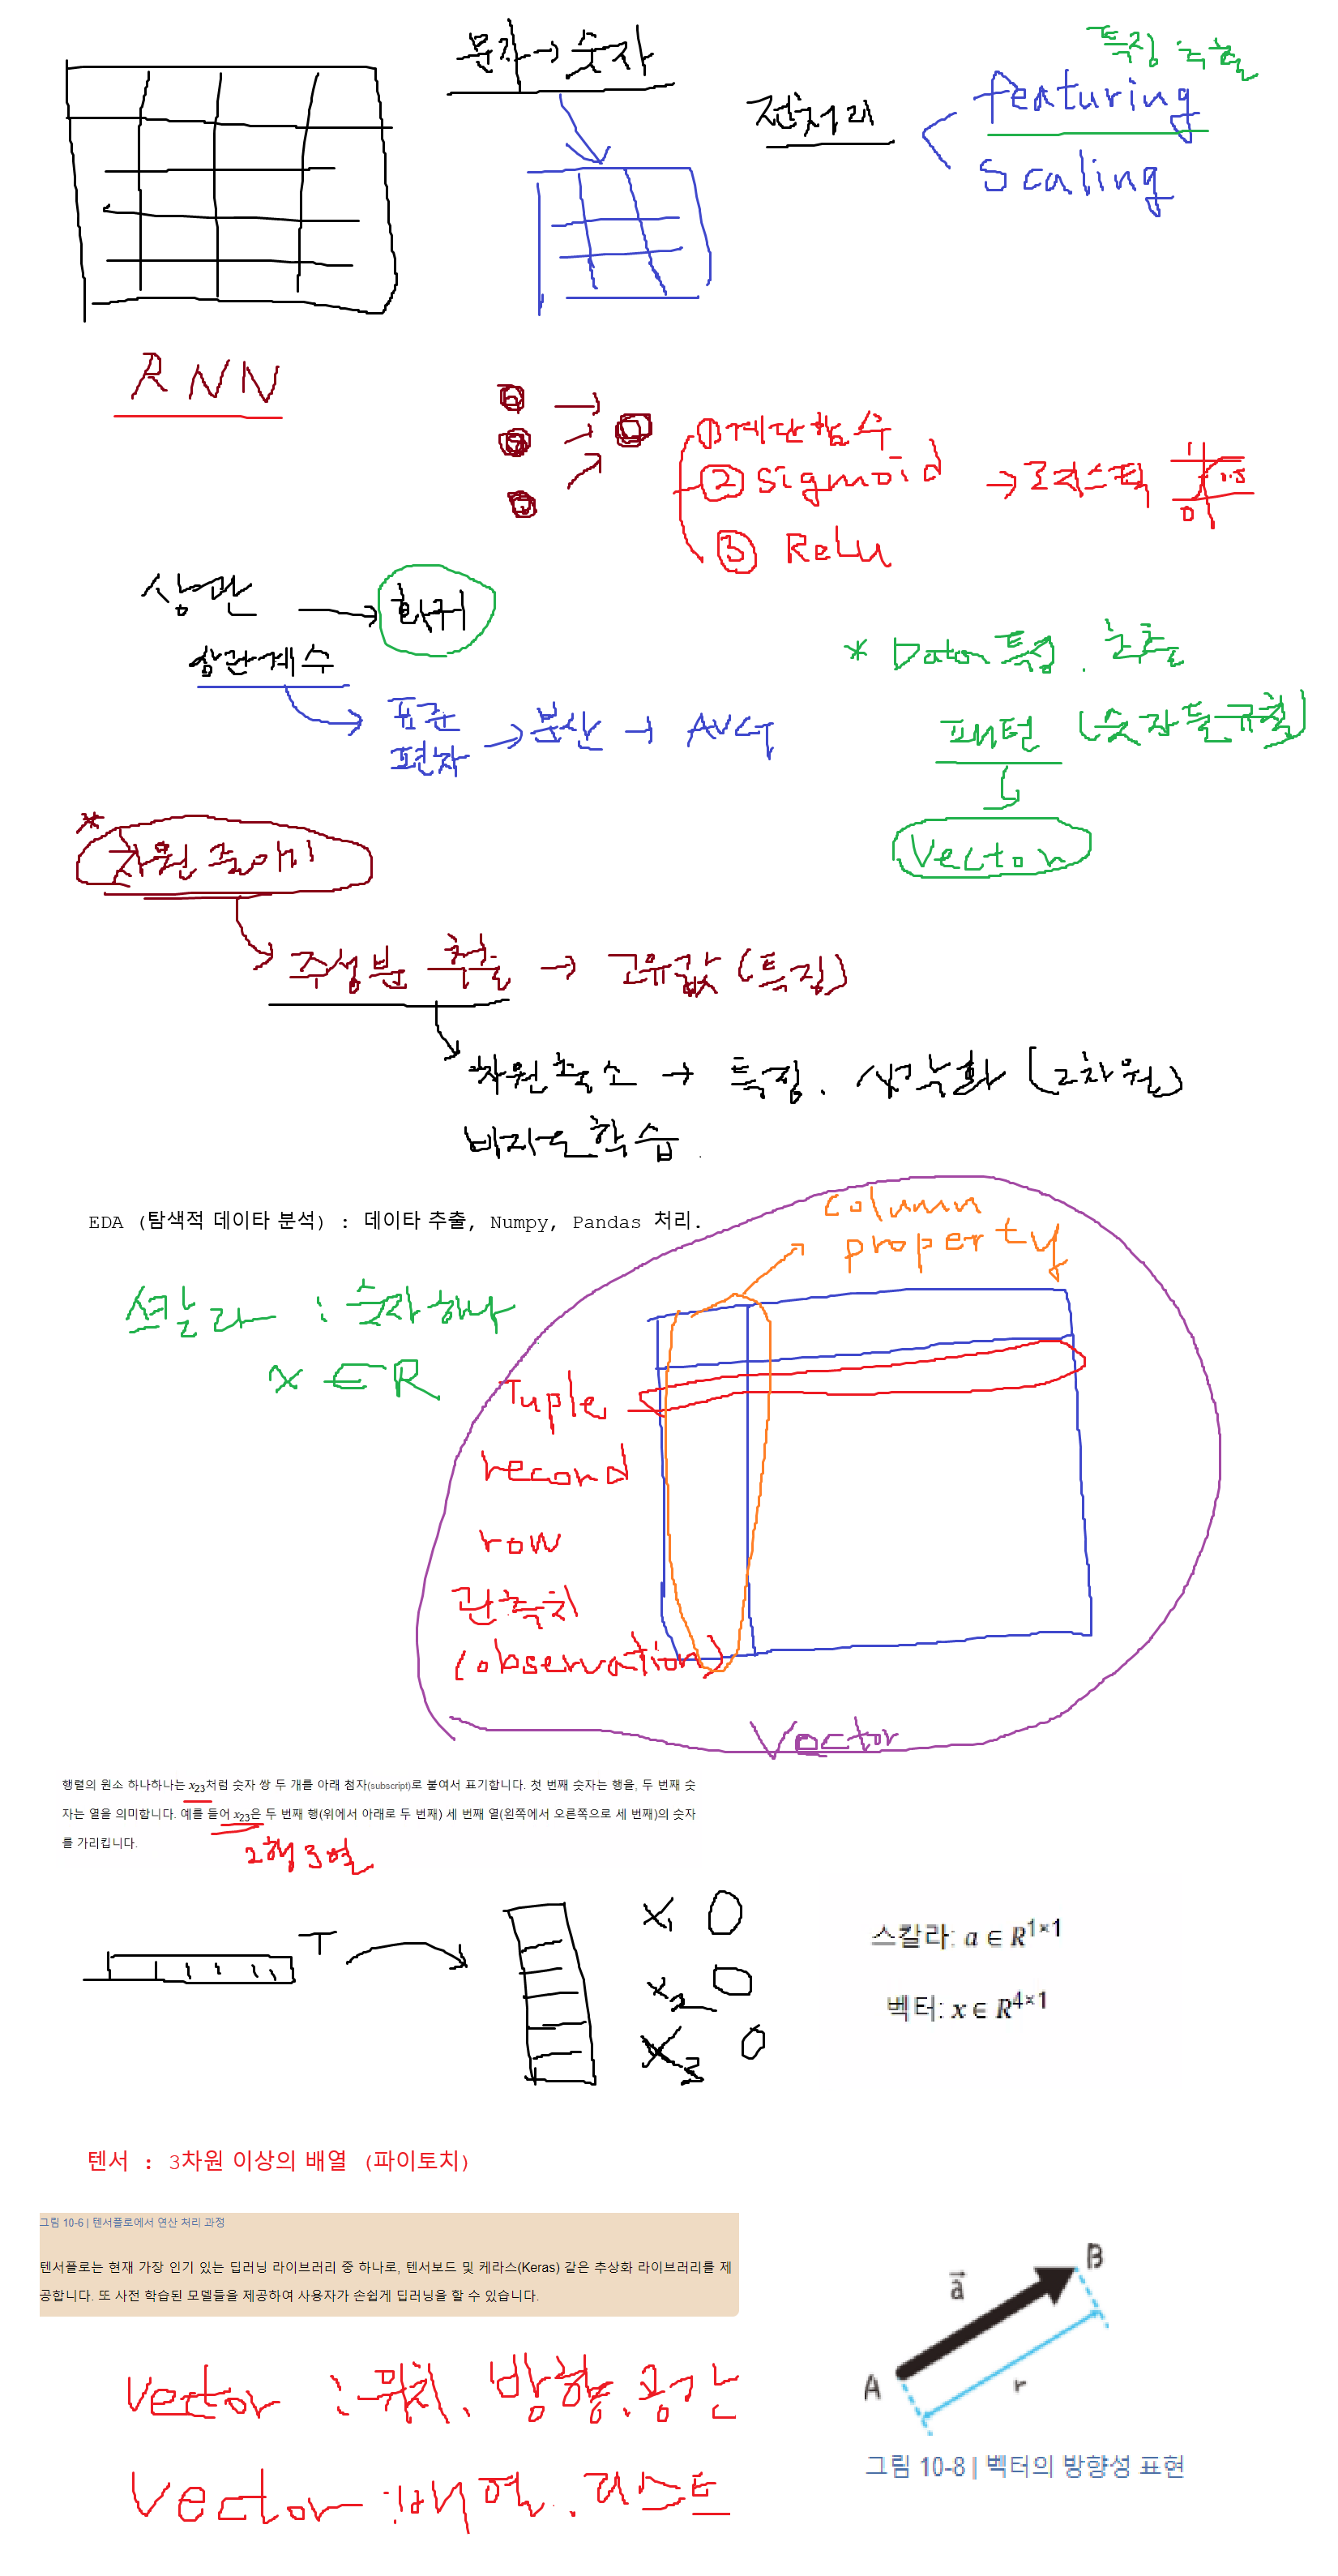 문자→숫자
특징 추출
전처리
featuring
Scaling
RNN
①계단함수
②Sigmoid → 로지스틱
1
0.5
0
③ Relu
상관 → 회귀
상관계수
표준
편차 → 분산 → AVG
* Data 특징. 추출
패턴 (숫자들 규칙)
Vector
* 차원 줄이기
주성분 추출 → 고유값 (특징)
차원축소 → 특징. 시각화 (2차원)
비지도학습.
EDA (탐색적 데이타 분석) : 데이타 추출, Numpy, Pandas 처리.
column
property
스칼라 : 숫자하나
x ∈ R
Tuple,
record
row
관측치
(observation)
Vector
행렬의 원소 하나하나는 x23처럼 숫자 쌍 두 개를 아래 첨자(subscript)로 붙여서 표기합니다. 첫 번째 숫자는 행을, 두 번째 숫
자는 열을 의미합니다. 예를 들어 x23은 두 번째 행(위에서 아래로 두 번째) 세 번째 열(왼쪽에서 오른쪽으로 세 번째)의 숫자
를 가리킵니다.
2행 3열
T
x1 0
x2 0
x3 0
스칼라: a ∈ R1×1
벡터: x ∈ R4×1
텐서 : 3차원 이상의 배열 (파이토치)
그림 10-6 | 텐서플로에서 연산 처리 과정
텐서플로는 현재 가장 인기 있는 딥러닝 라이브러리 중 하나로, 텐서보드 및 케라스(Keras) 같은 추상화 라이브러리를 제
공합니다. 또 사전 학습된 모델들을 제공하여 사용자가 손쉽게 딥러닝을 할 수 있습니다.
B
a
A
r
그림 10-8 | 벡터의 방향성 표현
Vector : 위치. 방향. 공간
Vector : 배열. 리스트